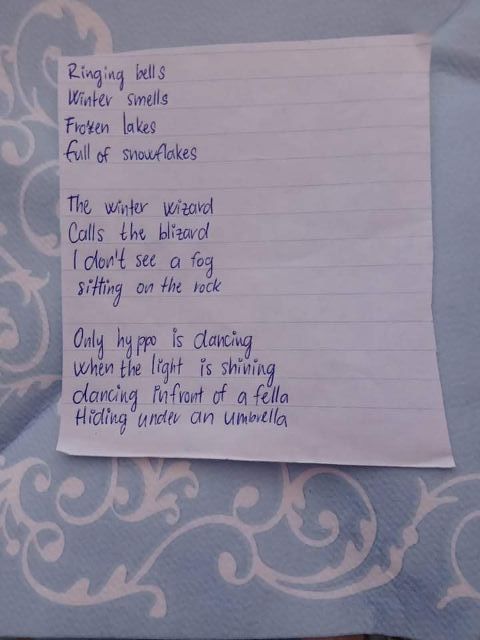 Ringing bells
Winter smells
Frozen lakes
full of snowflakes
The winter wizard
Calls the blizard
I don't see a fog
sitting on the rock
Only hyppo is dancing
when the light is shining
dancing infront of a fella
Hiding under an umbrella